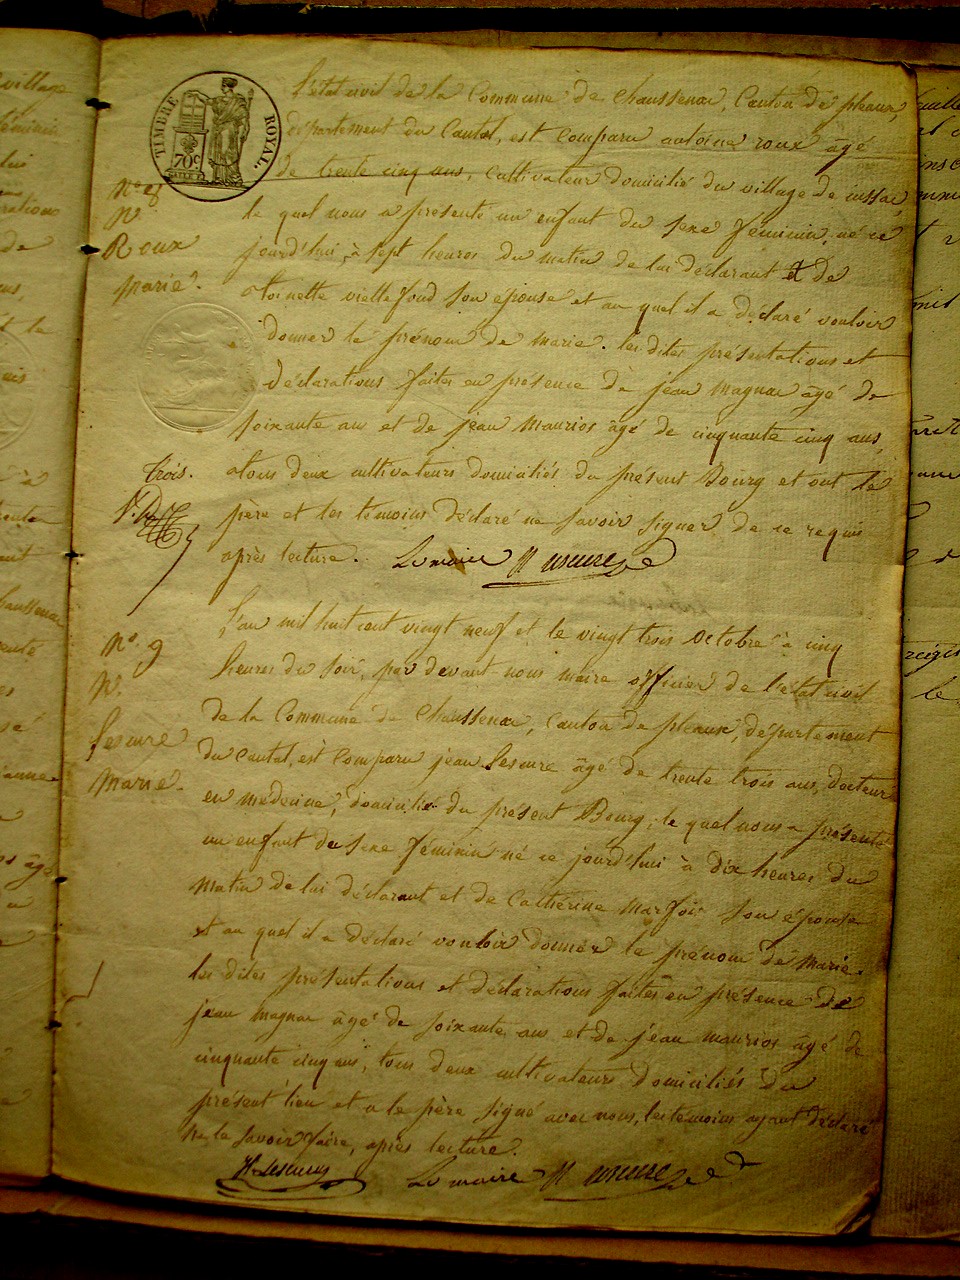 TIMBRE ROYAL.
70c
l'état civil de la Commune de Chaussenac, Canton de pleaux,
département du Cantal, est Comparu antoine roux âgé
de trente cinq ans, Cultivateur domicilié du village de
le quel nous a présenté un enfant du sexe féminin, né ce
jourd'hui, à sept heures du matin de lui déclarant et de
toinette viellefond son épouse et au quel il a déclaré vouloir
donner le prénom de marie. les dites présentations et
déclarations faites en présence de jean magnac âgé de
soixante ans et de jean maurios âgé de cinquante cinq ans,
tous deux cultivateurs domiciliés du présent Bourg et ont le
père et les témoins déclaré ne savoir signer de ce requis
après lecture. Le maire
N° 8
N.
Roux
marie.
trois.
L'an mil huit cent vingt neuf et le vingt trois octobre à cinq
heures du soir, par devant nous maire officier de l'état civil
de la Commune de Chaussenac, canton de pleaux, département
du cantal, est Comparu jean Lescure âgé de trente trois ans, docteur
en médecine, domicilié du présent Bourg, le quel nous a présenté
un enfant du sexe féminin né ce jourd'hui à dix heures du
matin de lui déclarant et de Catherine marfoir son épouse
et au quel il a déclaré vouloir donner le prénom de marie.
les dites présentations et déclarations faites en présence de
jean magnac âgé de soixante ans et de jean maurios âgé de
cinquante cinq ans, tous deux cultivateurs domiciliés du
présent lieu et a le père signé avec nous, les témoins ayant déclaré
ne le savoir faire, après lecture.
Lescure Le maire Lescure
N° 9
N.
Lescure
Marie.